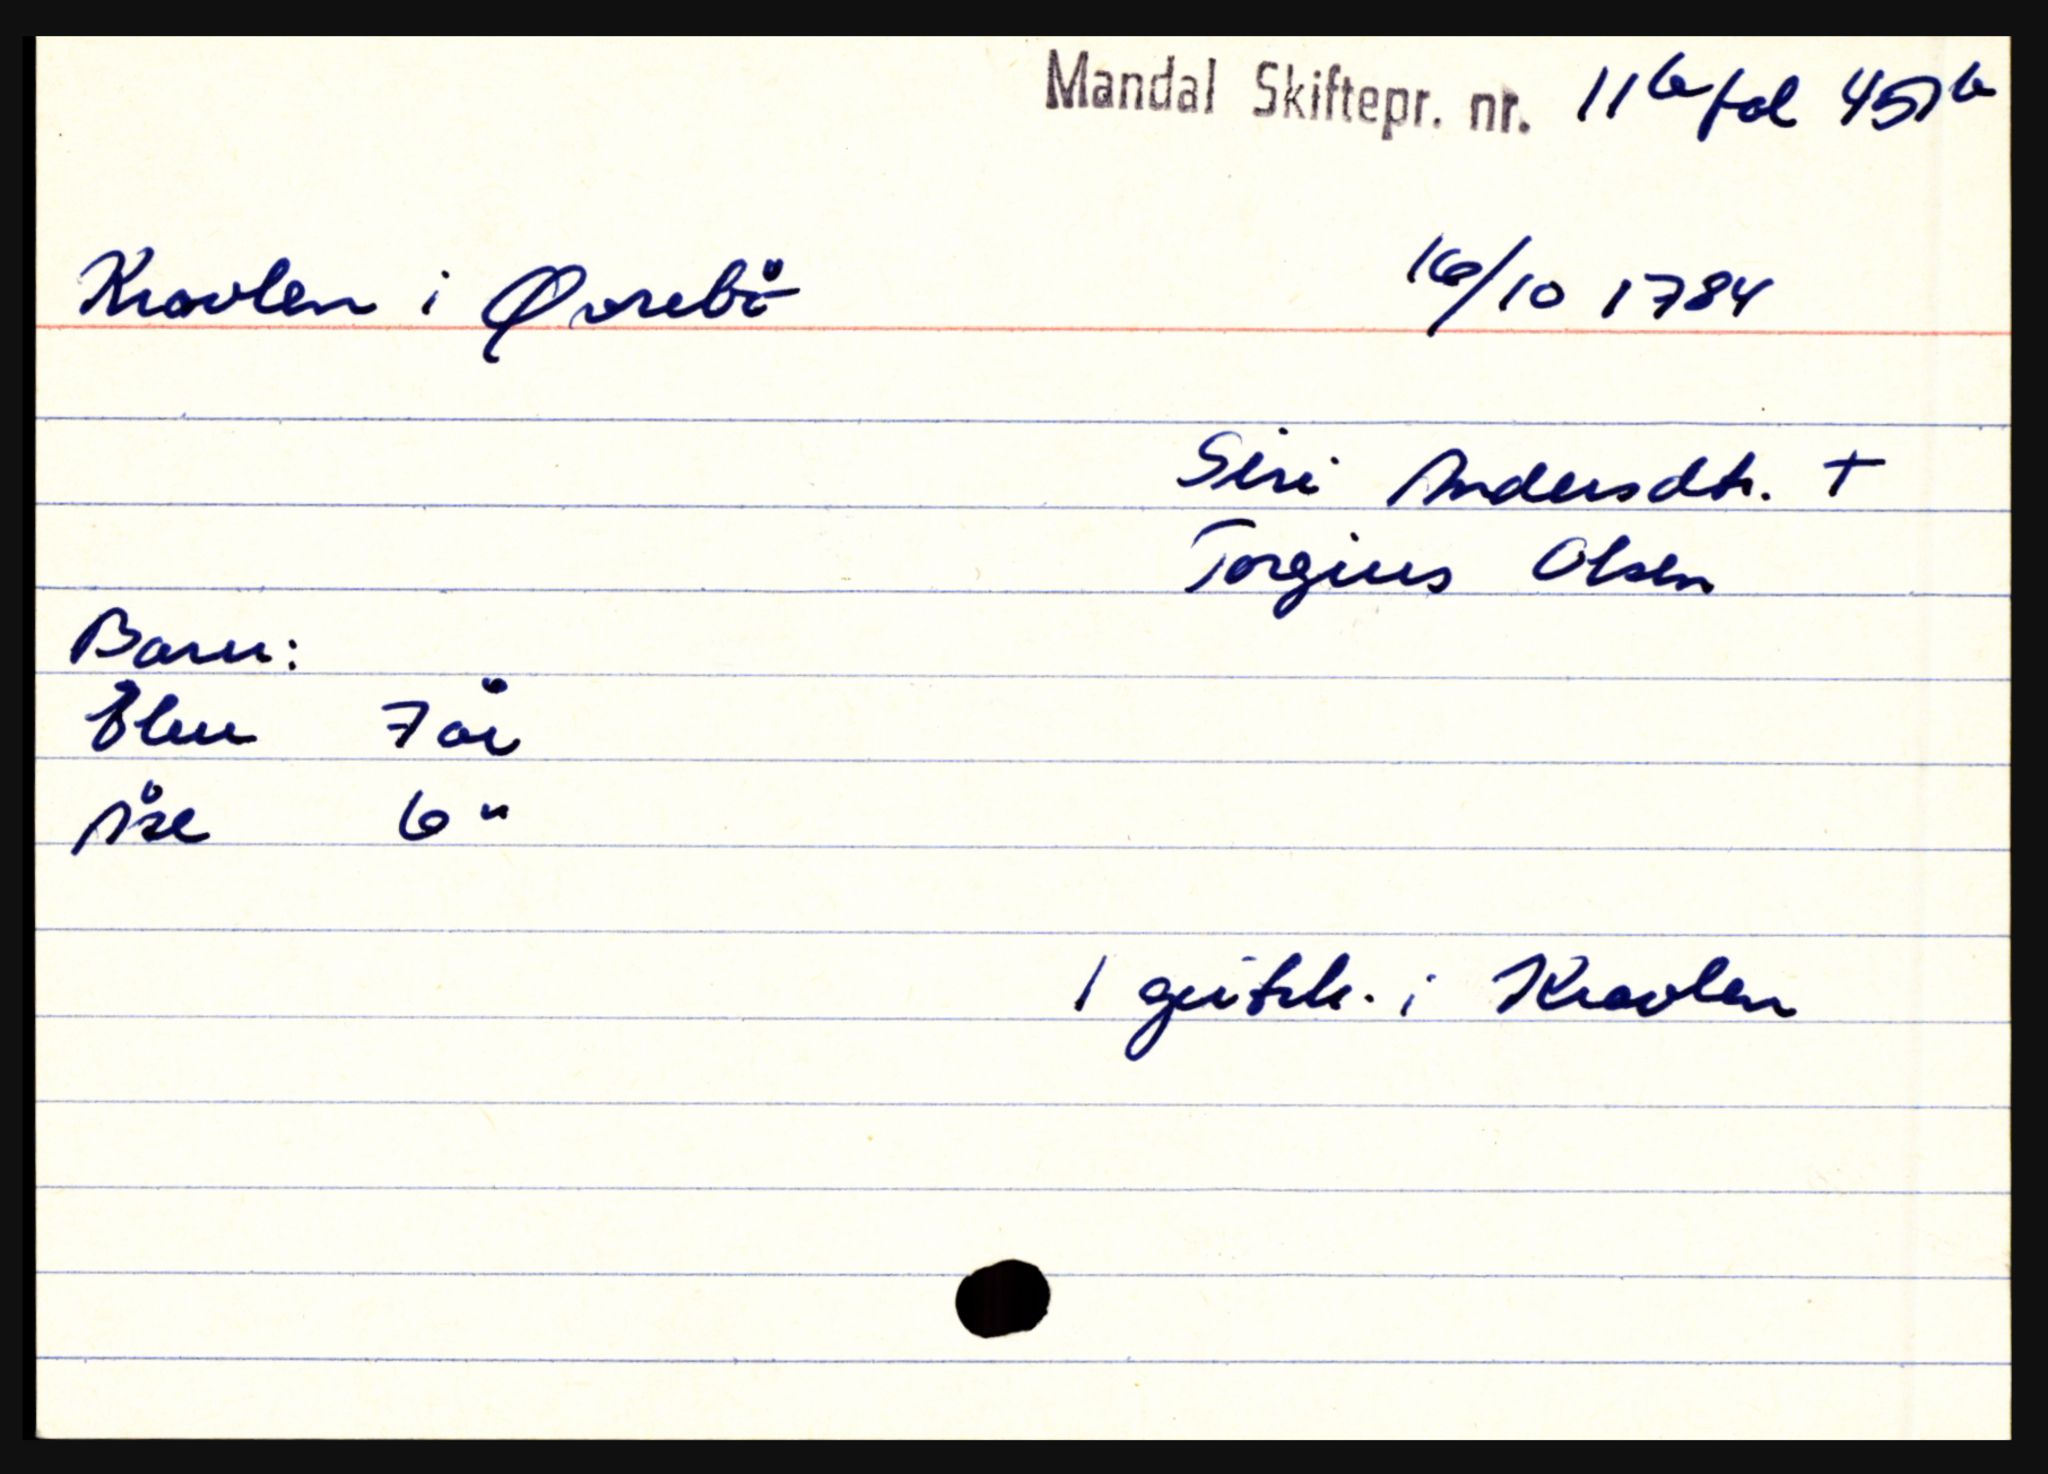 Mandal Skiftepr. nr. 11b fol 457b
Kravlen i Øvrebö 16/10 1784
Siri Andersdtr. +
Torgius Olsen
Barn:
Elen 7 år
Åse 6 "
1 geitsk. i Kravlen